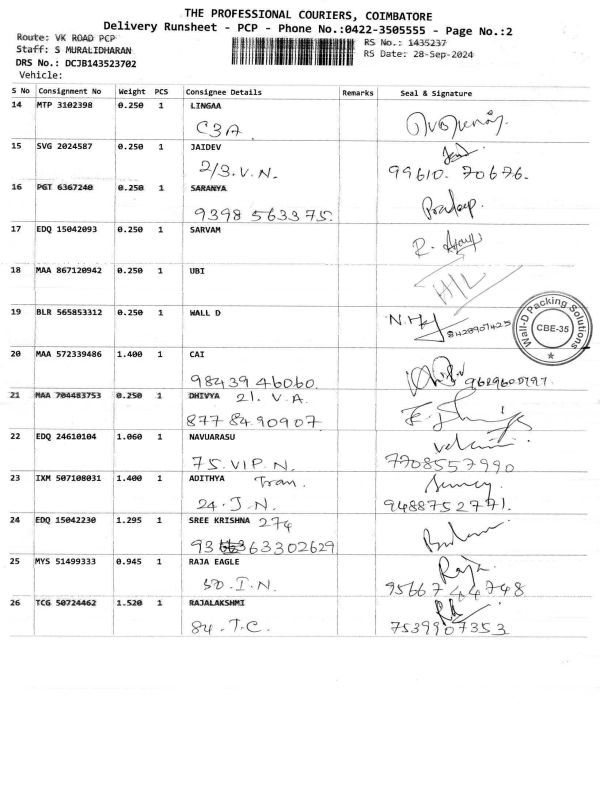 THE PROFESSIONAL COURIERS, COIMBATORE
Delivery Runsheet - PCP - Phone No.:0422-3505555 - Page No.:2
Route: VK ROAD PCP RS No.: 1435237
Staff: S MURALIDHARAN RS Date: 28-Sep-2024
DRS No.: DCJB143523702
Vehicle:
S No Consignment No Weight PCS Consignee Details Remarks Seal & Signature
14 MTP 3102398 0.250 1 LINGAA
C3A
15 SVG 2024587 0.250 1 JAIDEV
2/3.V.N. 99610. 70676.
16 PGT 6367240 0.250 1 SARANYA Pradeep.
9398 563375.
17 EDQ 15042093 0.250 1 SARVAM
18 MAA 867120942 0.250 1 UBI
H/L
19 BLR 565853312 0.250 1 WALL D
8428907425
Wall-D Packing Solutions
CBE-35
20 MAA 572339486 1.400 1 CAI
98439 46060.
21 MAA 704483753 0.250 1 DHIVYA 21. V.A.
877 84.90907.
22 EDQ 24610104 1.060 1 NAVUARASU
75. VIP. N. 7708557990
23 IXM 507108031 1.400 1 ADITHYA Tran.
24. J.N. 9488752771.
24 EDQ 15042230 1.295 1 SREE KRISHNA 274
93 63302629
25 MYS 51499333 0.945 1 RAJA EAGLE Raja
50. I.N. 9566744748
26 TCG 50724462 1.520 1 RAJALAKSHMI
84. T.C. 7539907353